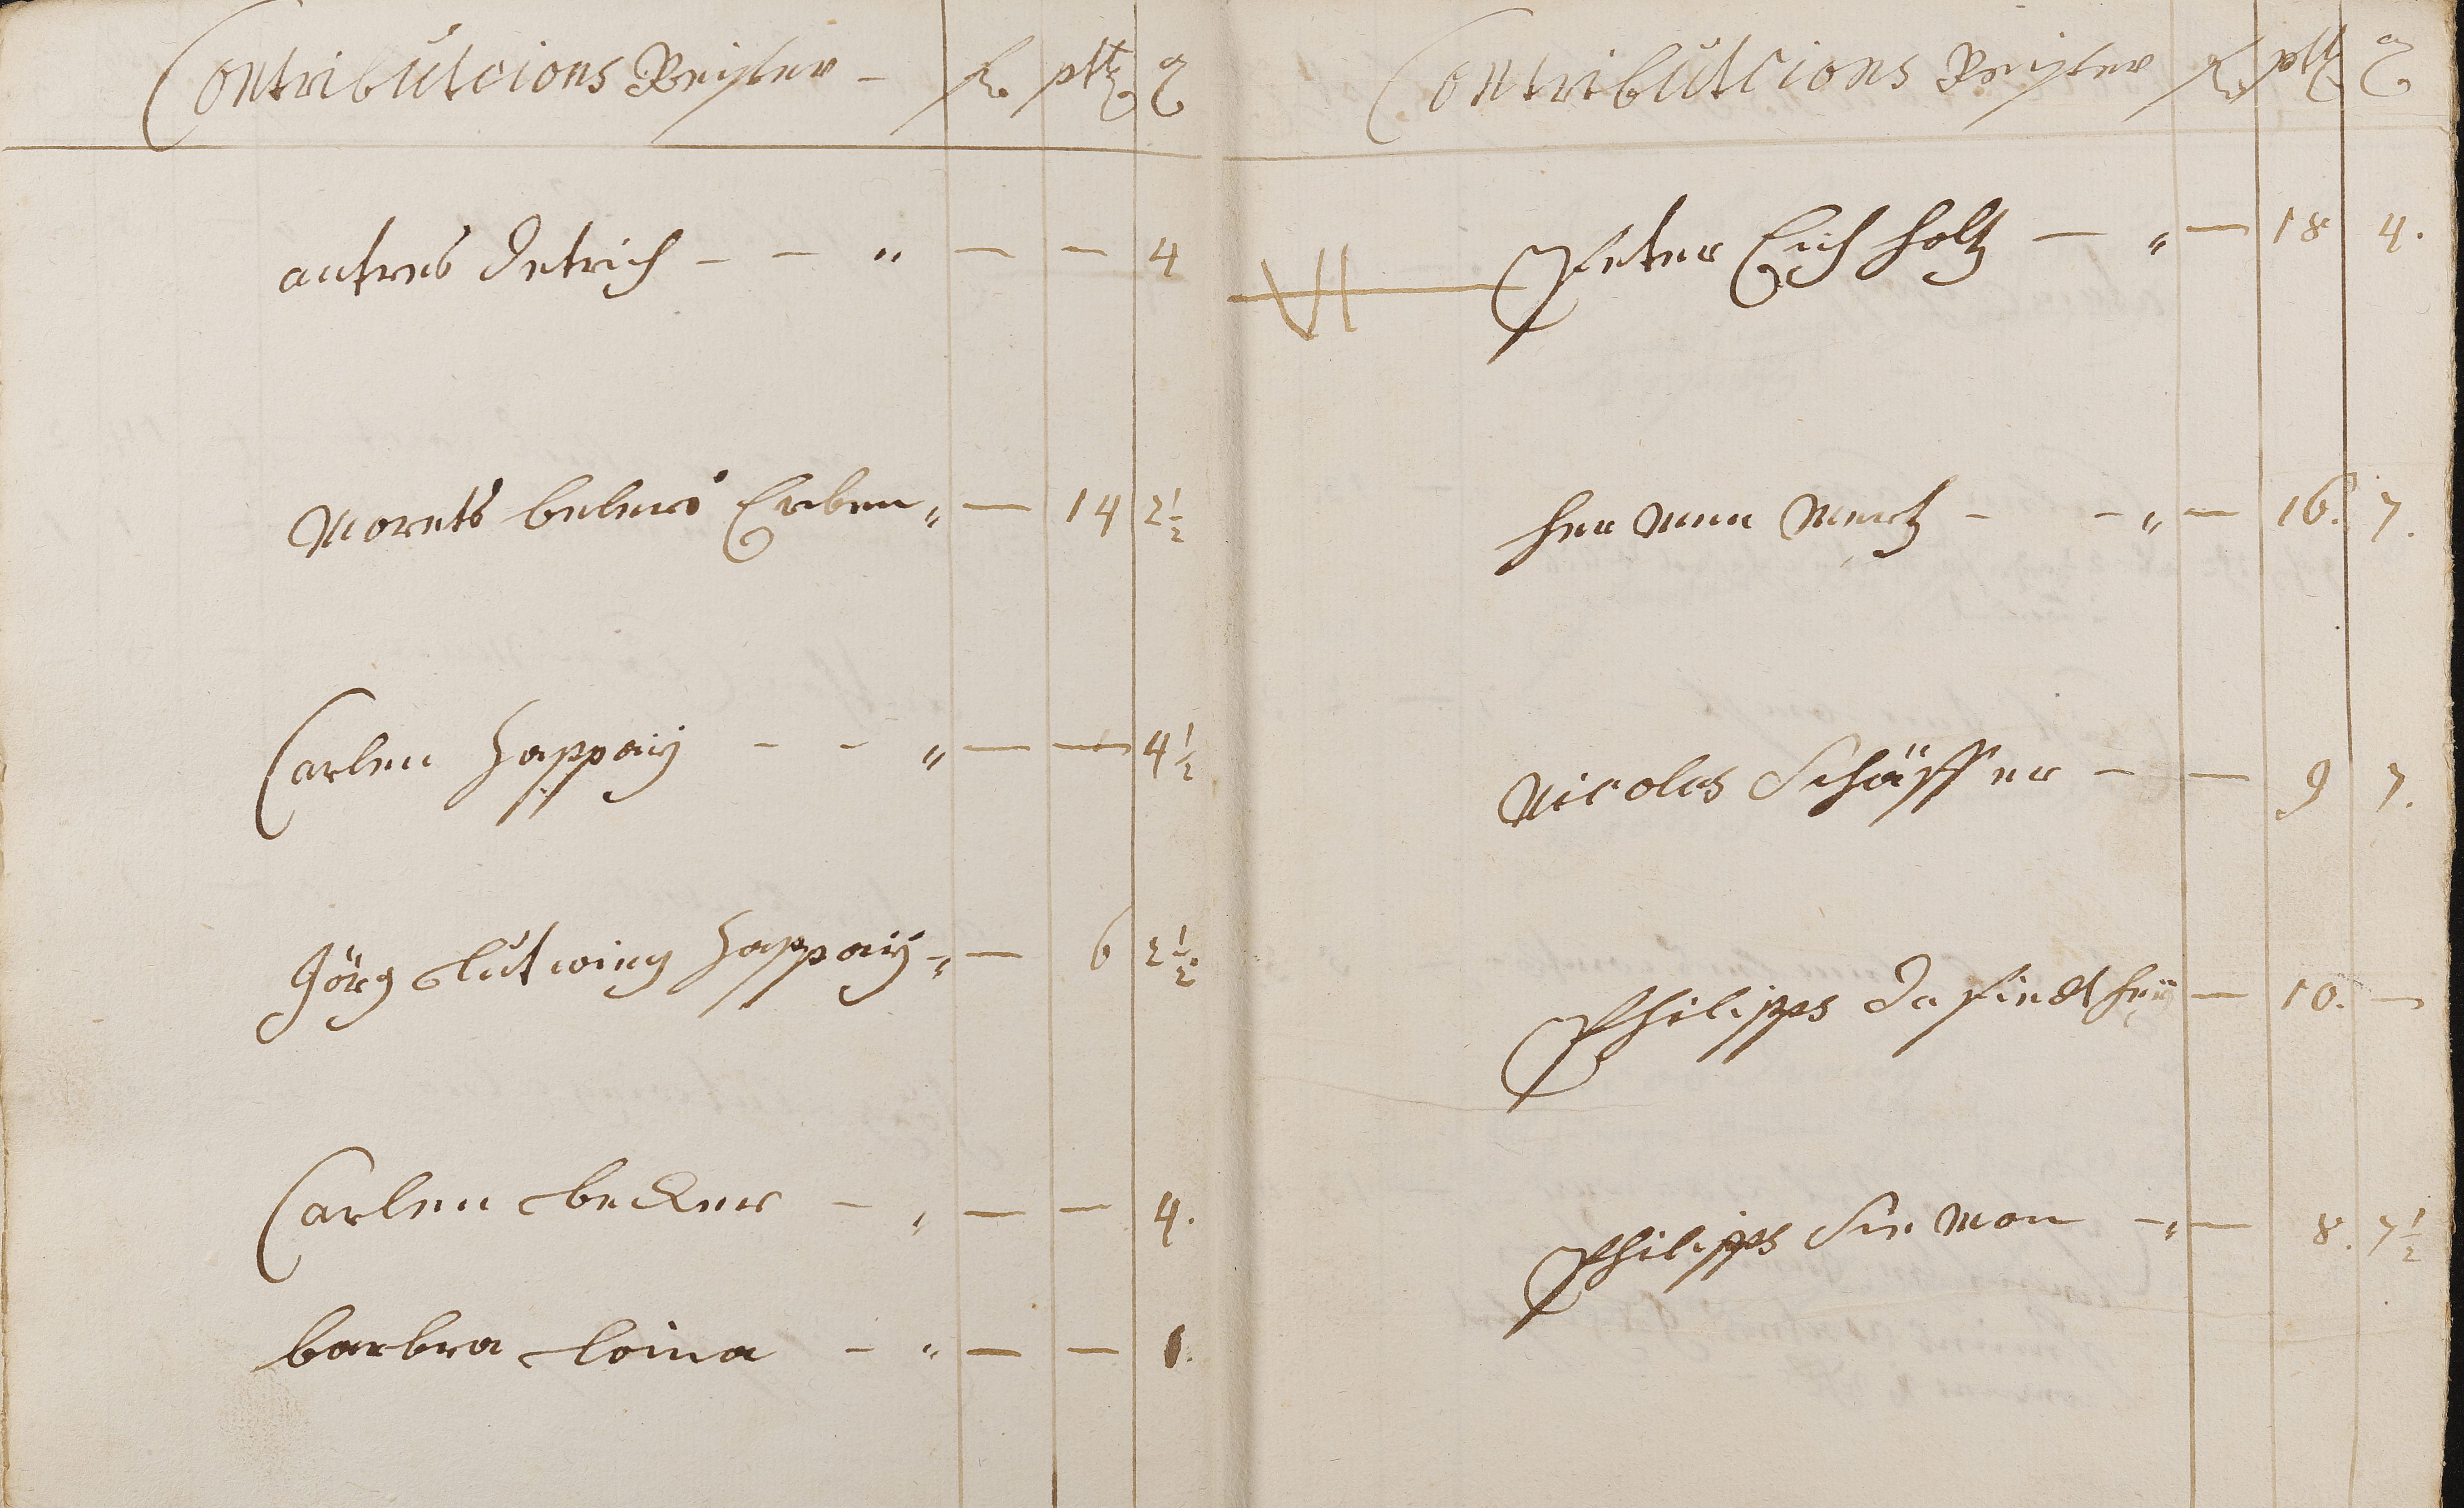 Contributcions Reister - fl ptz ₰
antres Detrich - - " - - 4
Morets belers Erben " - 14 2½
Carlen Happaÿ - - " - - 4½
Görg Lutwig Happaÿ " - 6 2½
Carlen Becker - " - - 4.
barbra Loina - " - - 1.
Contributcions Reister fl ptz ₰
VI Peter Eichholtz - " - 18 4.
Herman Mertz - - " - 16. 7.
Nicolas Schäffer - - 9 7.
Philipps - 10. -
Philipps Siemon - " - 8. 7½